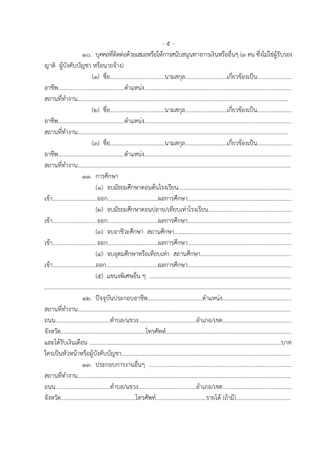 - ๕ -
๑๐. บุคคลที่ติดต่อด้วยเสมอหรือให้การสนับสนุนทางการเงินหรืออื่นๆ (๓ คน ซึ่งไม่ใช่ผู้รับรอง
ญาติ ผู้บังคับบัญชา หรือนายจ้าง)
(๑) ชื่อ....................................นามสกุล............................เกี่ยวข้องเป็น.......................
อาชีพ...........................................ตำแหน่ง..................................................................................................
สถานที่ทำงาน...........................................................................................................................................
(๒) ชื่อ....................................นามสกุล............................เกี่ยวข้องเป็น.......................
อาชีพ...........................................ตำแหน่ง..................................................................................................
สถานที่ทำงาน...........................................................................................................................................
(๓) ชื่อ....................................นามสกุล............................เกี่ยวข้องเป็น.......................
อาชีพ...........................................ตำแหน่ง..................................................................................................
สถานที่ทำงาน.............................................................................................................................................
๑๑. การศึกษา
(๑) จบมัธยมศึกษาตอนต้นโรงเรียน...........................................................................
เข้า.............................ออก.................................ผลการศึกษา.....................................................................
(๒) จบมัธยมศึกษาตอนปลาย/เทียบเท่าโรงเรียน.......................................................
เข้า.............................ออก.................................ผลการศึกษา.....................................................................
(๓) จบอาชีวะศึกษา สถานศึกษา..............................................................................
เข้า.............................ออก.................................ผลการศึกษา.....................................................................
(๔) จบอุดมศึกษาหรือเทียบเท่า สถานศึกษา.............................................................
เข้า............................ออก..................................ผลการศึกษา.....................................................................
(๕) แขนงพิเศษอื่น ๆ ..............................................................................................
....................................................................................................................................................................
๑๒. ปัจจุบันประกอบอาชีพ....................................ตำแหน่ง..............................................
สถานที่ทำงาน.............................................................................................................................................
ถนน....................................ตำบล/แขวง......................................อำเภอ/เขต..............................................
จังหวัด.......................................................โทรศัพท์...................................................................................
และได้รับเงินเดือน ..............................................................................................................................บาท
ใครเป็นหัวหน้าหรือผู้บังคับบัญชา................................................................................................................
๑๓. ประกอบการงานอื่นๆ ...............................................................................................
สถานที่ทำงาน.............................................................................................................................................
ถนน....................................ตำบล/แขวง......................................อำเภอ/เขต..............................................
จังหวัด................................................โทรศัพท์.................................รายได้ (ถ้ามี)....................................